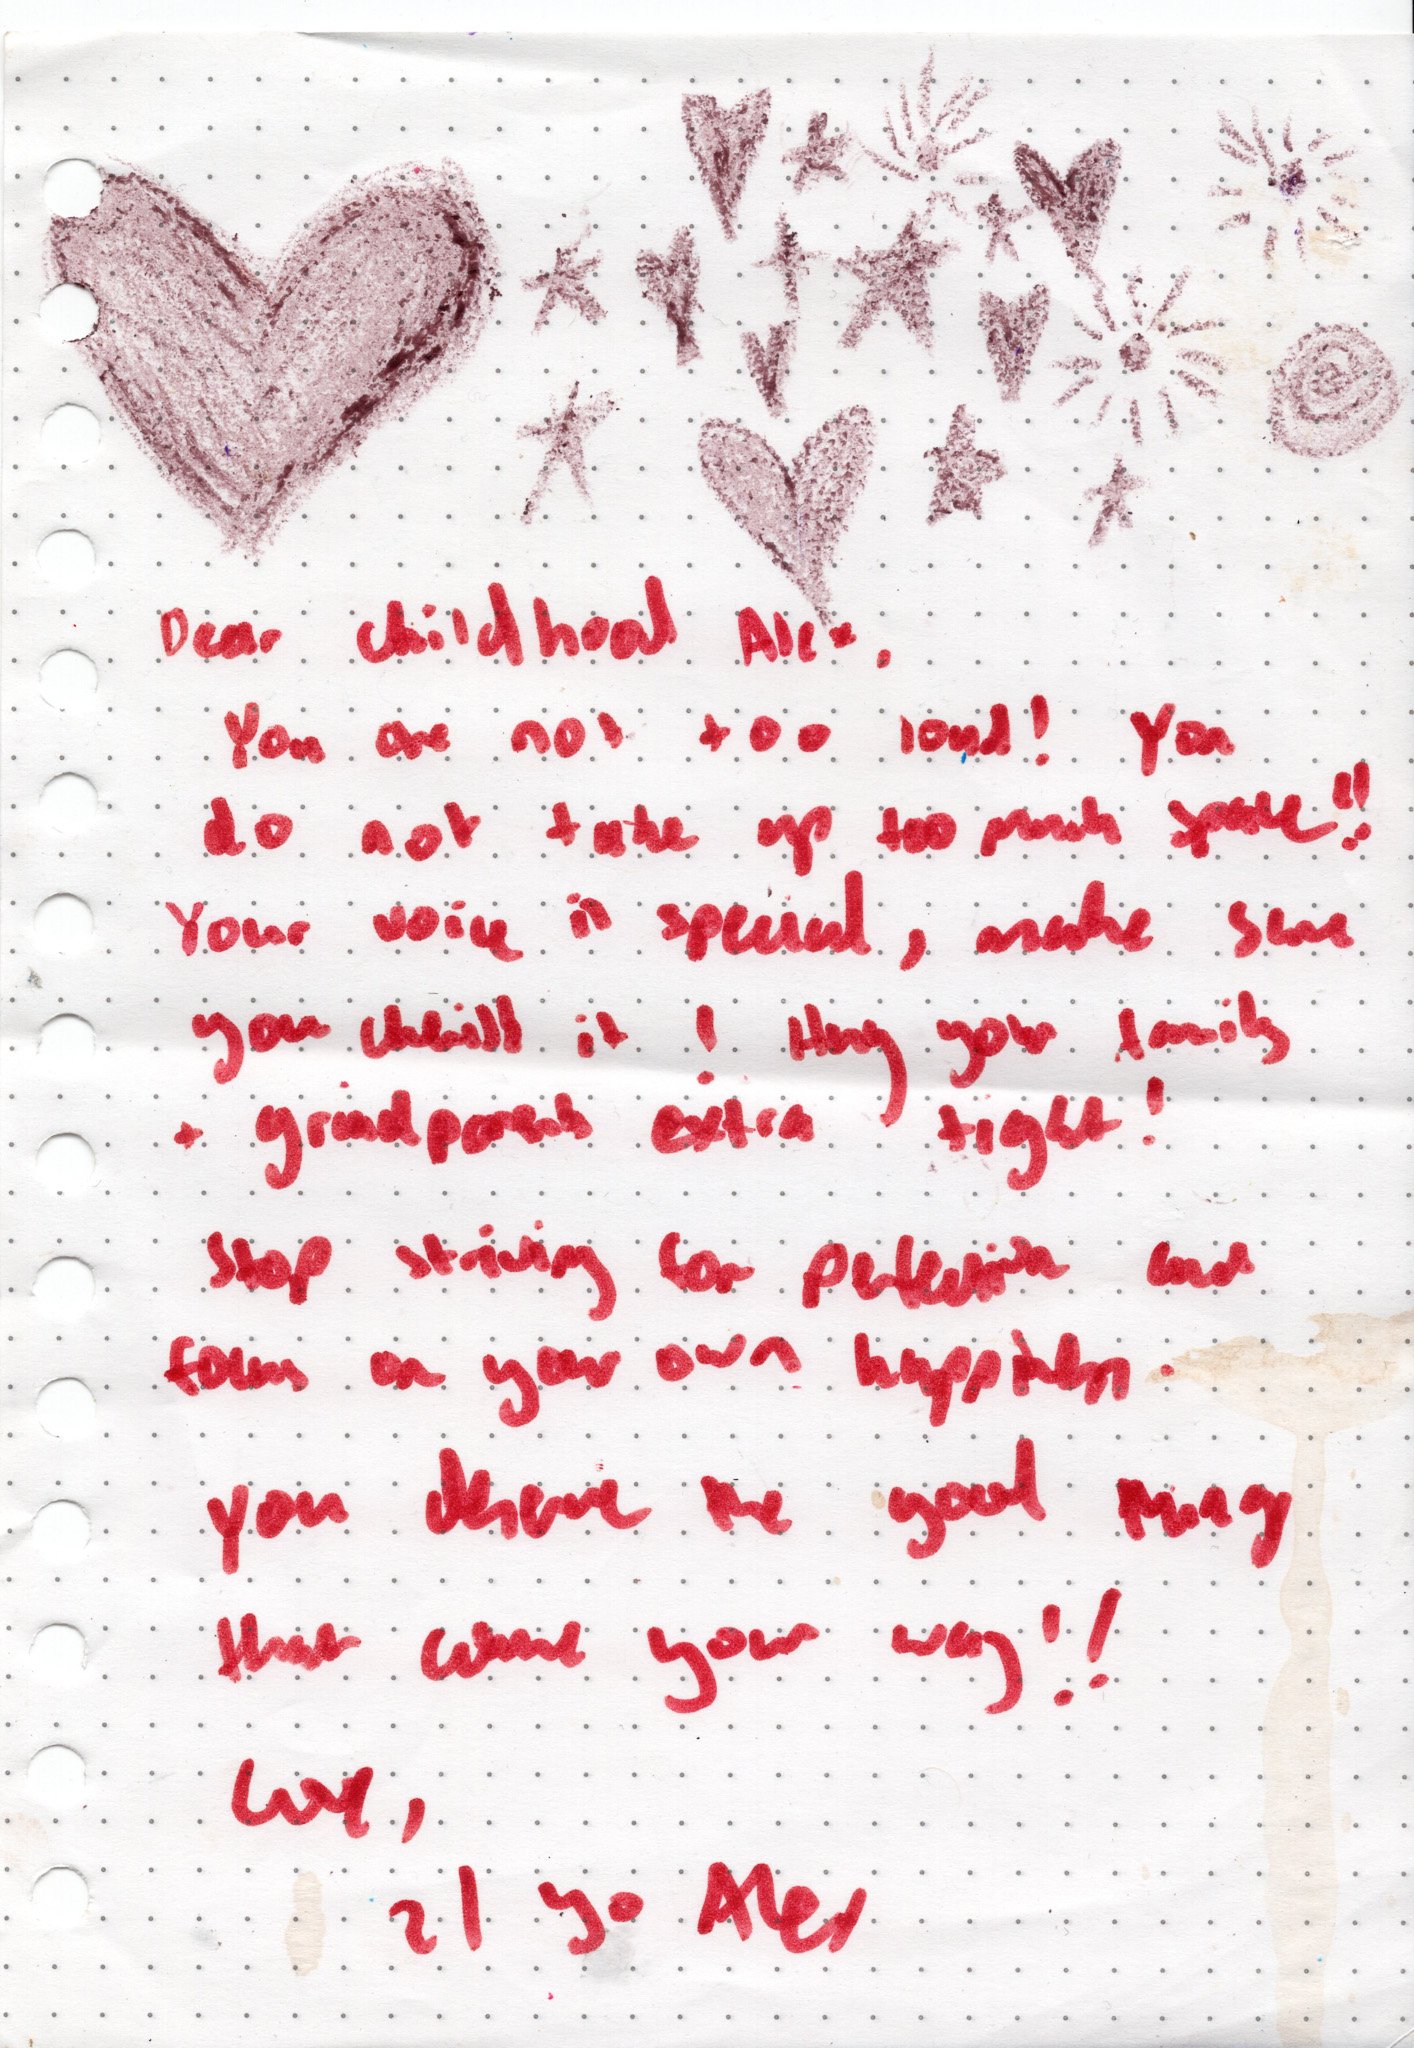 Dear childhood Alex,
You are not too loud! You
do not take up too much space!!
Your voice is special, make sure
you cherish it! Hug your family
+ grandparents extra tight!
Stop striving for perfection and
focus on your own happiness.
you deserve the good things
that come your way!!
Love,
21 yo Alex